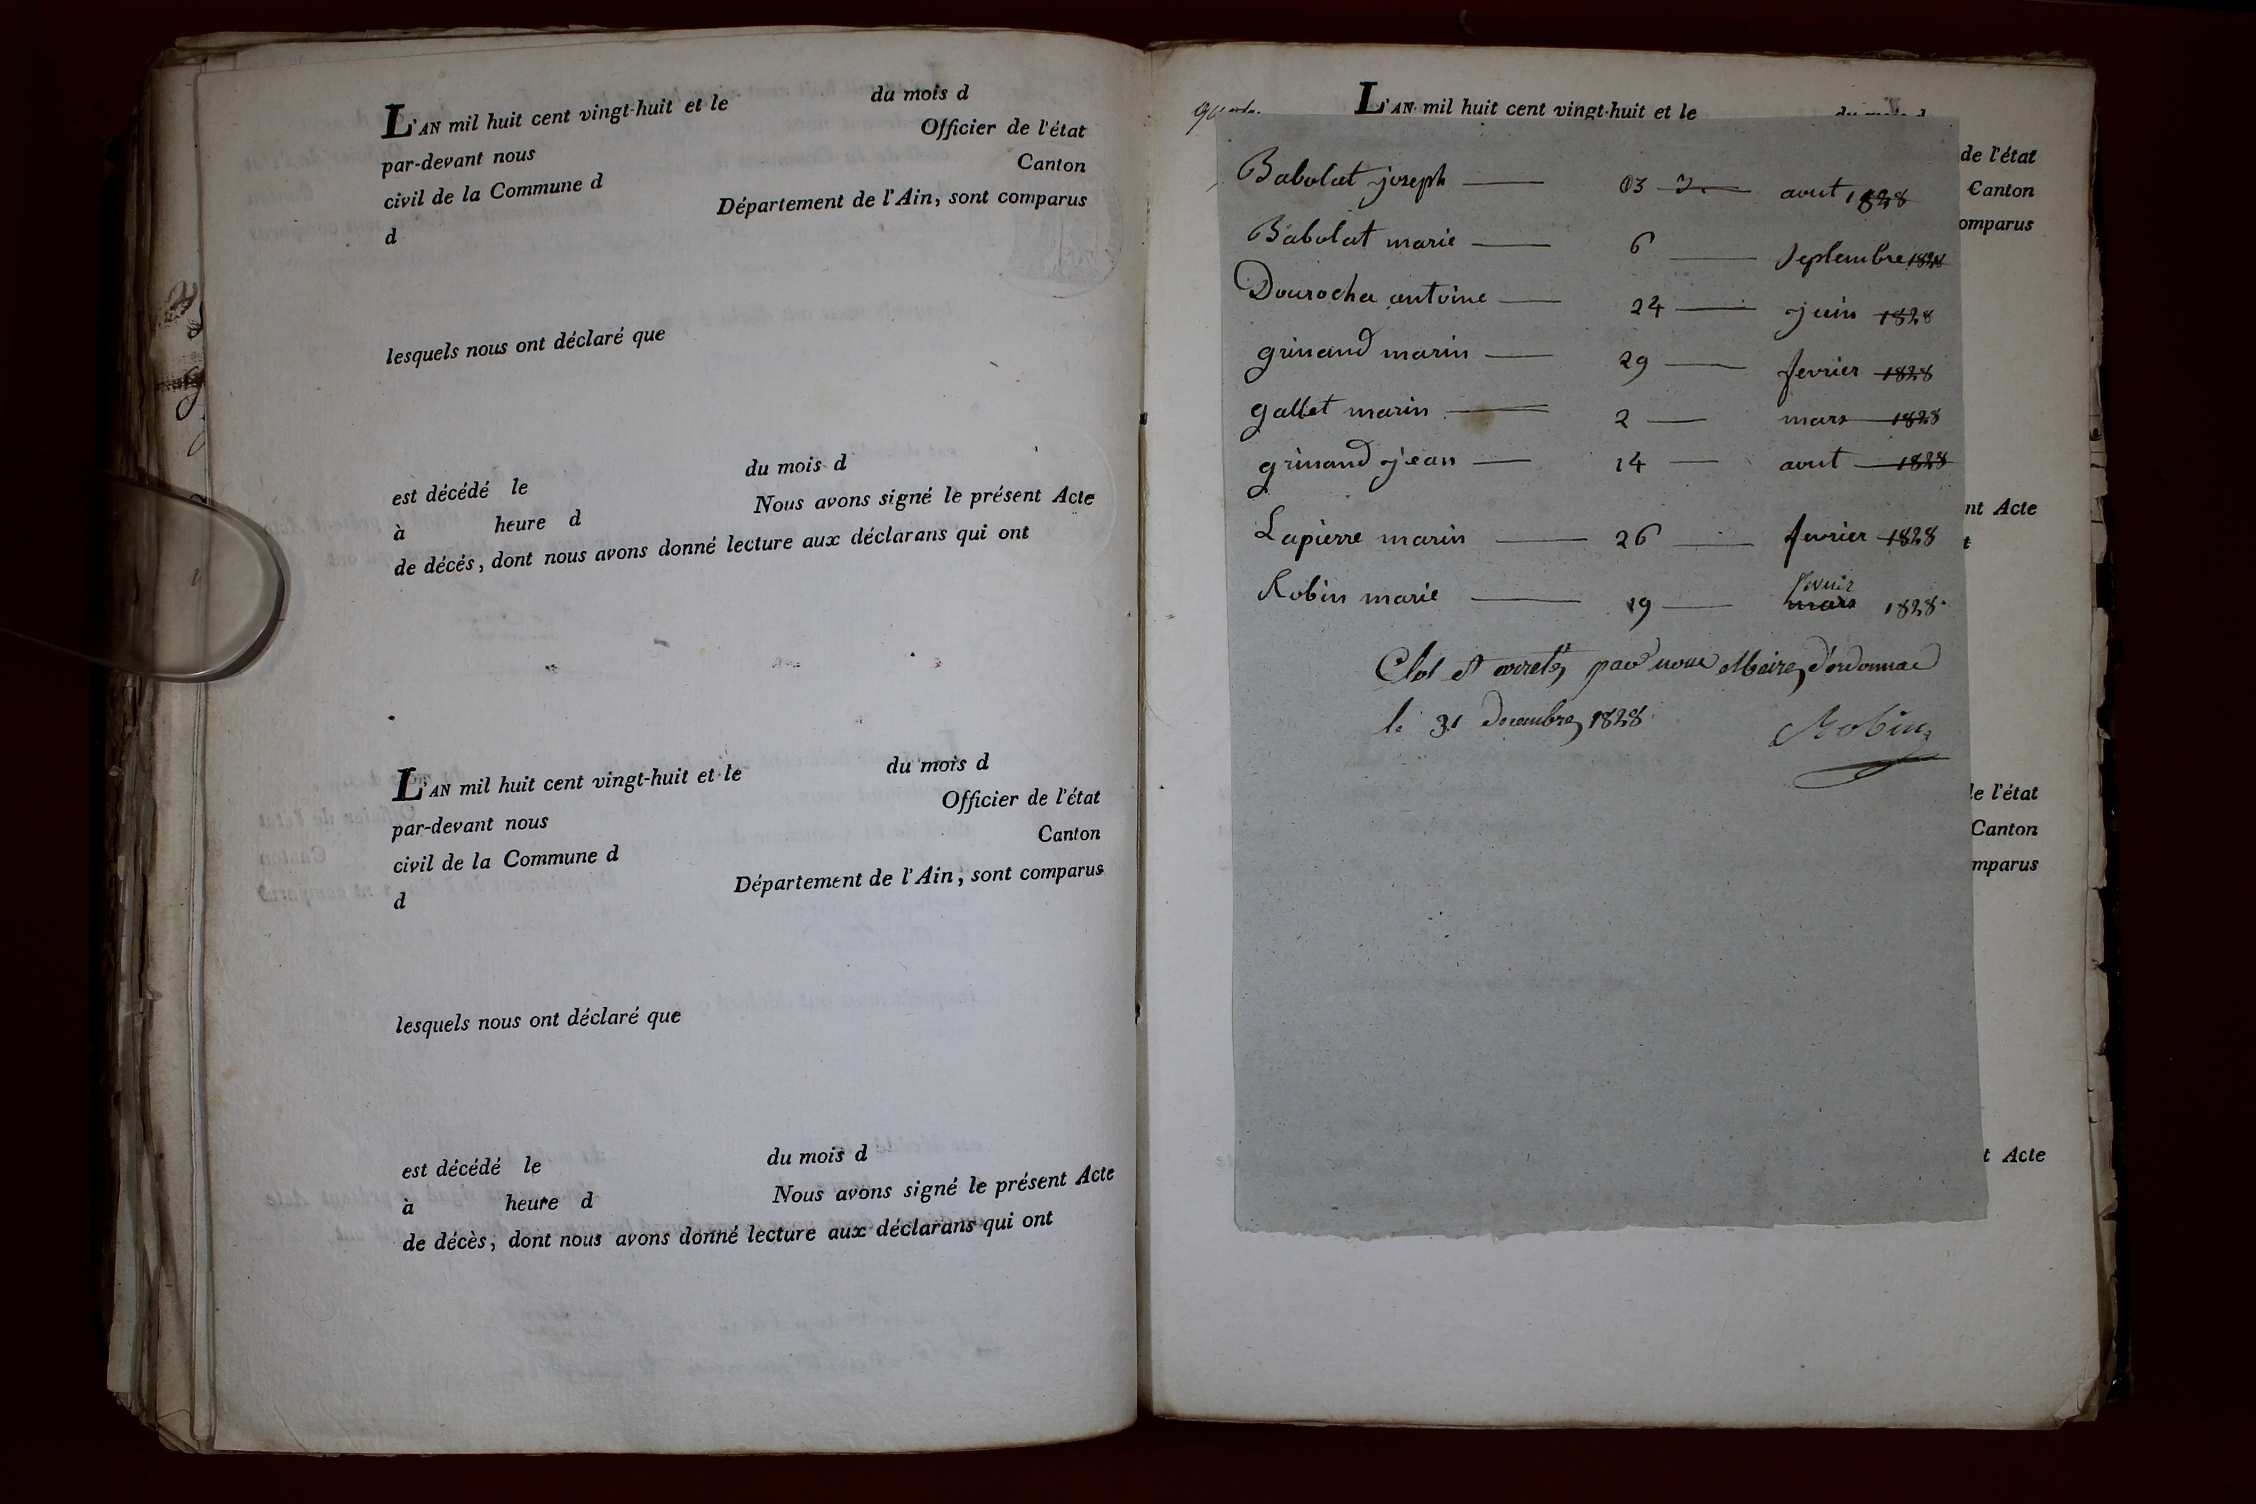 L'AN mil huit cent vingt-huit et le du mois d
par-devant nous Officier de l'état
civil de la Commune d Canton
d Département de l'Ain, sont comparus
lesquels nous ont déclaré que
est décédé le du mois d
à heure d Nous avons signé le présent Acte
de décés, dont nous avons donné lecture aux déclarans qui ont
L'AN mil huit cent vingt-huit et le du mois d
par-devant nous Officier de l'état
civil de la Commune d Canton
d Département de l'Ain, sont comparus
lesquels nous ont déclaré que
est décédé le du mois d
à heure d Nous avons signé le présent Acte
de décès, dont nous avons donné lecture aux déclarans qui ont
L'AN mil huit cent vingt-huit et le du mois d
de l'état
Canton
omparus
Babolat joseph — 03 — aout 1828
Babolat marie — 6 — septembre 1828
Dourocher antoine — 24 — juin 1828
grinand marin — 29 — fevrier 1828
gallet marin — 2 — mars 1828
grinand jean — 14 — aout 1828
nt Acte
t
Lapierre marin — 26 — fevrier 1828
Robin marie — 19 — fevrier mars 1828
Clos et arreté par nous Maire d'ordonnac
le 31 decembre 1828
Robin
le l'état
Canton
mparus
t Acte